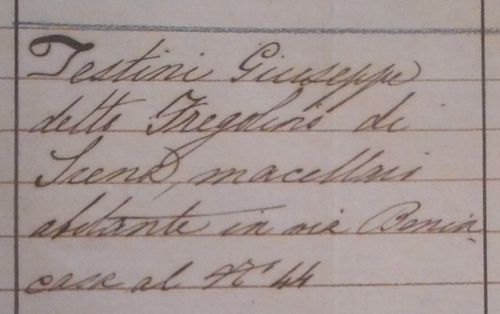 Testini Giuseppe
detto Fregolino di
Siena, macellaio
abitante in via Benin
casa al N° 44